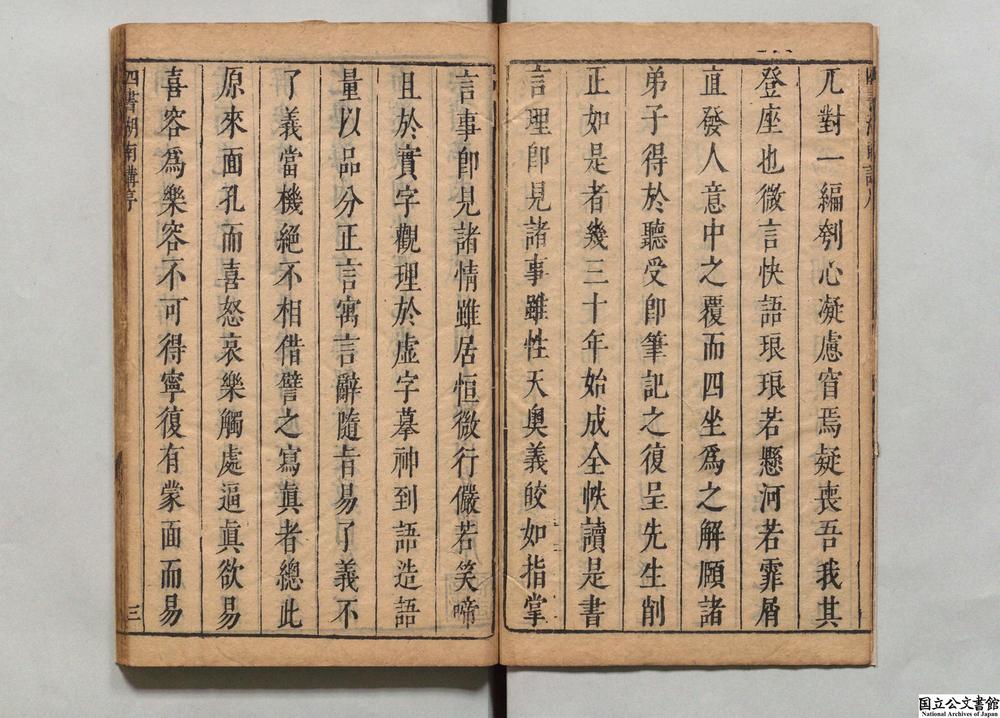 兀對一編刳心凝慮窅焉疑喪吾我其
登座也微言快語琅琅若懸河若霏屑
直發人意中之覆而四坐爲之解頤諸
弟子得於聽受卽筆記之復呈先生削
正如是者幾三十年始成全帙讀是書
言理卽見諸事雖性天奧義皎如指掌
言事卽見諸情雖居恒微行儼若笑啼
且於實字觀理於虛字摹神到語造語
量以品分正言寓言辭隨旨易了義不
了義當機絕不相借譬之寫眞者總此
原來面孔而喜怒哀樂觸處逼眞欲易
喜容爲樂容不可得寧復有蒙面而易
四書湖南講序
三
国立公文書館
National Archives of Japan